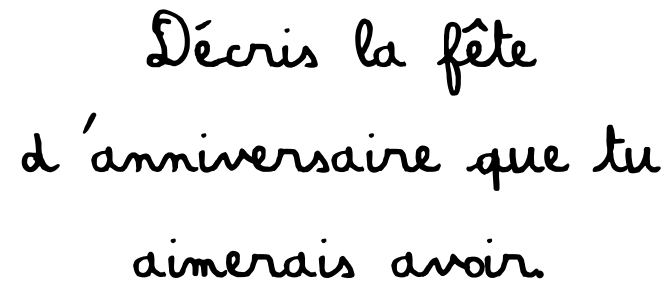 Décris la fête
d'anniversaire que tu
aimerais avoir.